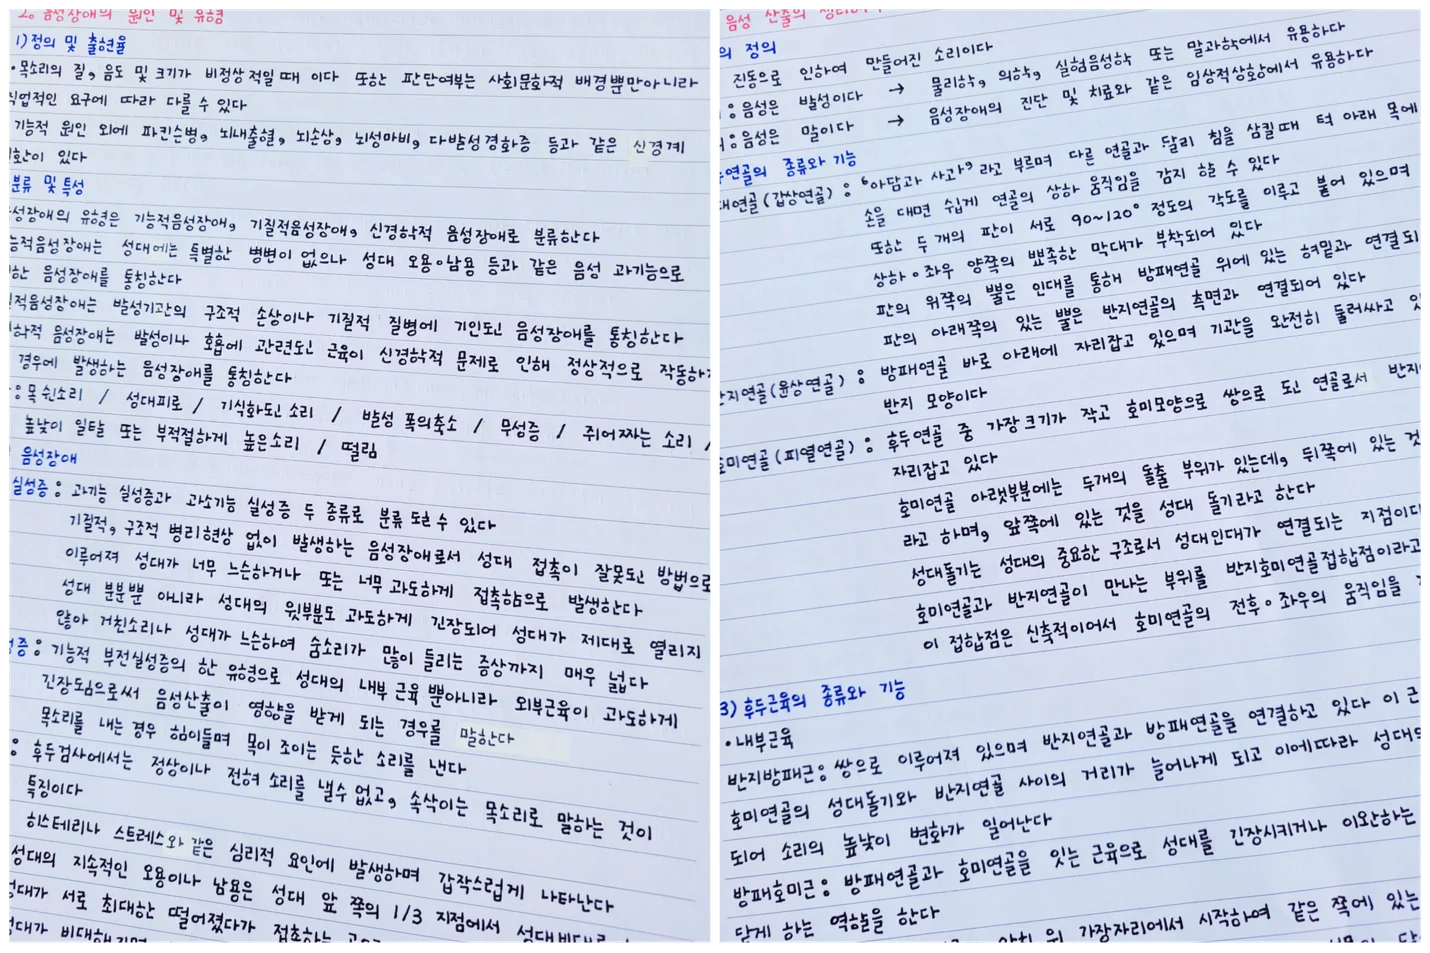 2. 음성장애의 원인 및 유형
1) 정의 및 출현율
• 목소리의 질, 음도 및 크기가 비정상적일 때 이다 또한 판단여부는 사회문화적 배경뿐만아니라
직업적인 요구에 따라 다를 수 있다
기능적 원인 외에 파킨슨병, 뇌내출혈, 뇌손상, 뇌성마비, 다발성경화증 등과 같은 신경계
있다
분류 및 특성
성장애의 유형은 기능적음성장애, 기질적음성장애, 신경학적 음성장애로 분류한다
능적음성장애는 성대에는 특별한 병변이 없으나 성대 오용•남용 등과 같은 음성 과기능으로
한 음성장애를 통칭한다
적음성장애는 발성기관의 구조적 손상이나 기질적 질병에 기인된 음성장애를 통칭한다
학적 음성장애는 발성이나 호흡에 관련된 근육이 신경학적 문제로 인해 정상적으로 작동하기
경우에 발생하는 음성장애를 통칭한다
: 목쉰소리 / 성대피로 / 기식화된 소리 / 발성 폭의축소 / 무성증 / 쥐어짜는 소리 /
높낮이 일탈 또는 부적절하게 높은소리 / 떨림
음성장애
실성증 : 과기능 실성증과 과소기능 실성증 두 종류로 분류 될 수 있다
기질적, 구조적 병리현상 없이 발생하는 음성장애로서 성대 접촉이 잘못된 방법으로
이루어져 성대가 너무 느슨하거나 또는 너무 과도하게 접촉함으로 발생한다
성대 분분뿐 아니라 성대의 윗부분도 과도하게 긴장되어 성대가 제대로 열리지
않아 거친소리나 성대가 느슨하여 숨소리가 많이 들리는 증상까지 매우 넓다
성증 : 기능적 부전실성증의 한 유형으로 성대의 내부 근육 뿐아니라 외부근육이 과도하게
긴장됨으로써 음성산출이 영향을 받게 되는 경우를 말한다
목소리를 내는 경우 힘이들며 목이 조이는 듯한 소리를 낸다
: 후두검사에서는 정상이나 전혀 소리를 낼수 없고, 속삭이는 목소리로 말하는 것이
특징이다
히스테리나 스트레스와 같은 심리적 요인에 발생하며 갑작스럽게 나타난다
성대의 지속적인 오용이나 남용은 성대 앞 쪽의 1/3 지점에서
성대가 서로 최대한 떨어졌다가 접촉하는
성대가 비대해지면
음성 산출의
의 정의
진동으로 인하여 만들어진 소리이다
: 음성은 발성이다 → 물리학, 의학, 실험음성학 또는 말과학에서 유용하다
: 음성은 말이다 → 음성장애의 진단 및 치료와 같은 임상적상황에서 유용하다
두연골의 종류와 기능
패연골 (갑상연골) : "아담과 사과"라고 부르며 다른 연골과 달리 침을 삼킬때 턱 아래 목에
손을 대면 쉽게 연골의 상하 움직임을 감지 할 수 있다
또한 두 개의 판이 서로 90~120° 정도의 각도를 이루고 붙어 있으며
상하•좌우 양쪽의 뾰족한 막대가 부착되어 있다
판의 위쪽의 뿔은 인대를 통해 방패연골 위에 있는 혀밑과 연결되
판의 아래쪽의 있는 뿔은 반지연골의 측면과 연결되어 있다
반지연골 (윤상연골) : 방패연골 바로 아래에 자리잡고 있으며 기관을 완전히 둘러싸고 있
반지 모양이다
호미연골 (피열연골) : 후두연골 중 가장크기가 작고 호미모양으로 쌍으로 된 연골로서 반지
자리잡고 있다
호미연골 아랫부분에는 두개의 돌출 부위가 있는데, 뒤쪽에 있는 것
라고 하며, 앞쪽에 있는 것을 성대 돌기라고 한다
성대돌기는 성대의 중요한 구조로서 성대인대가 연결되는 지점이다
호미연골과 반지연골이 만나는 부위를 반지호미연골접합점이라고
이 접합점은 신축적이어서 호미연골의 전후•좌우의 움직임을
3) 후두근육의 종류와 기능
• 내부근육
반지방패근 : 쌍으로 이루어져 있으며 반지연골과 방패연골을 연결하고 있다 이 근
호미연골의 성대돌기와 반지연골 사이의 거리가 늘어나게 되고 이에따라 성대의
되어 소리의 높낮이 변화가 일어난다
방패호미근 : 방패연골과 호미연골을 잇는 근육으로 성대를 긴장시키거나 이완하는
닫게 하는 역할을 한다
위 가장자리에서 시작하여 같은 쪽에 있는